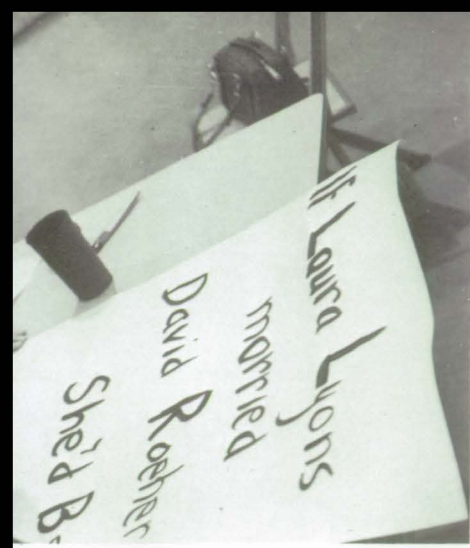 If Laura Lyons
married
David Roeher
She'd B